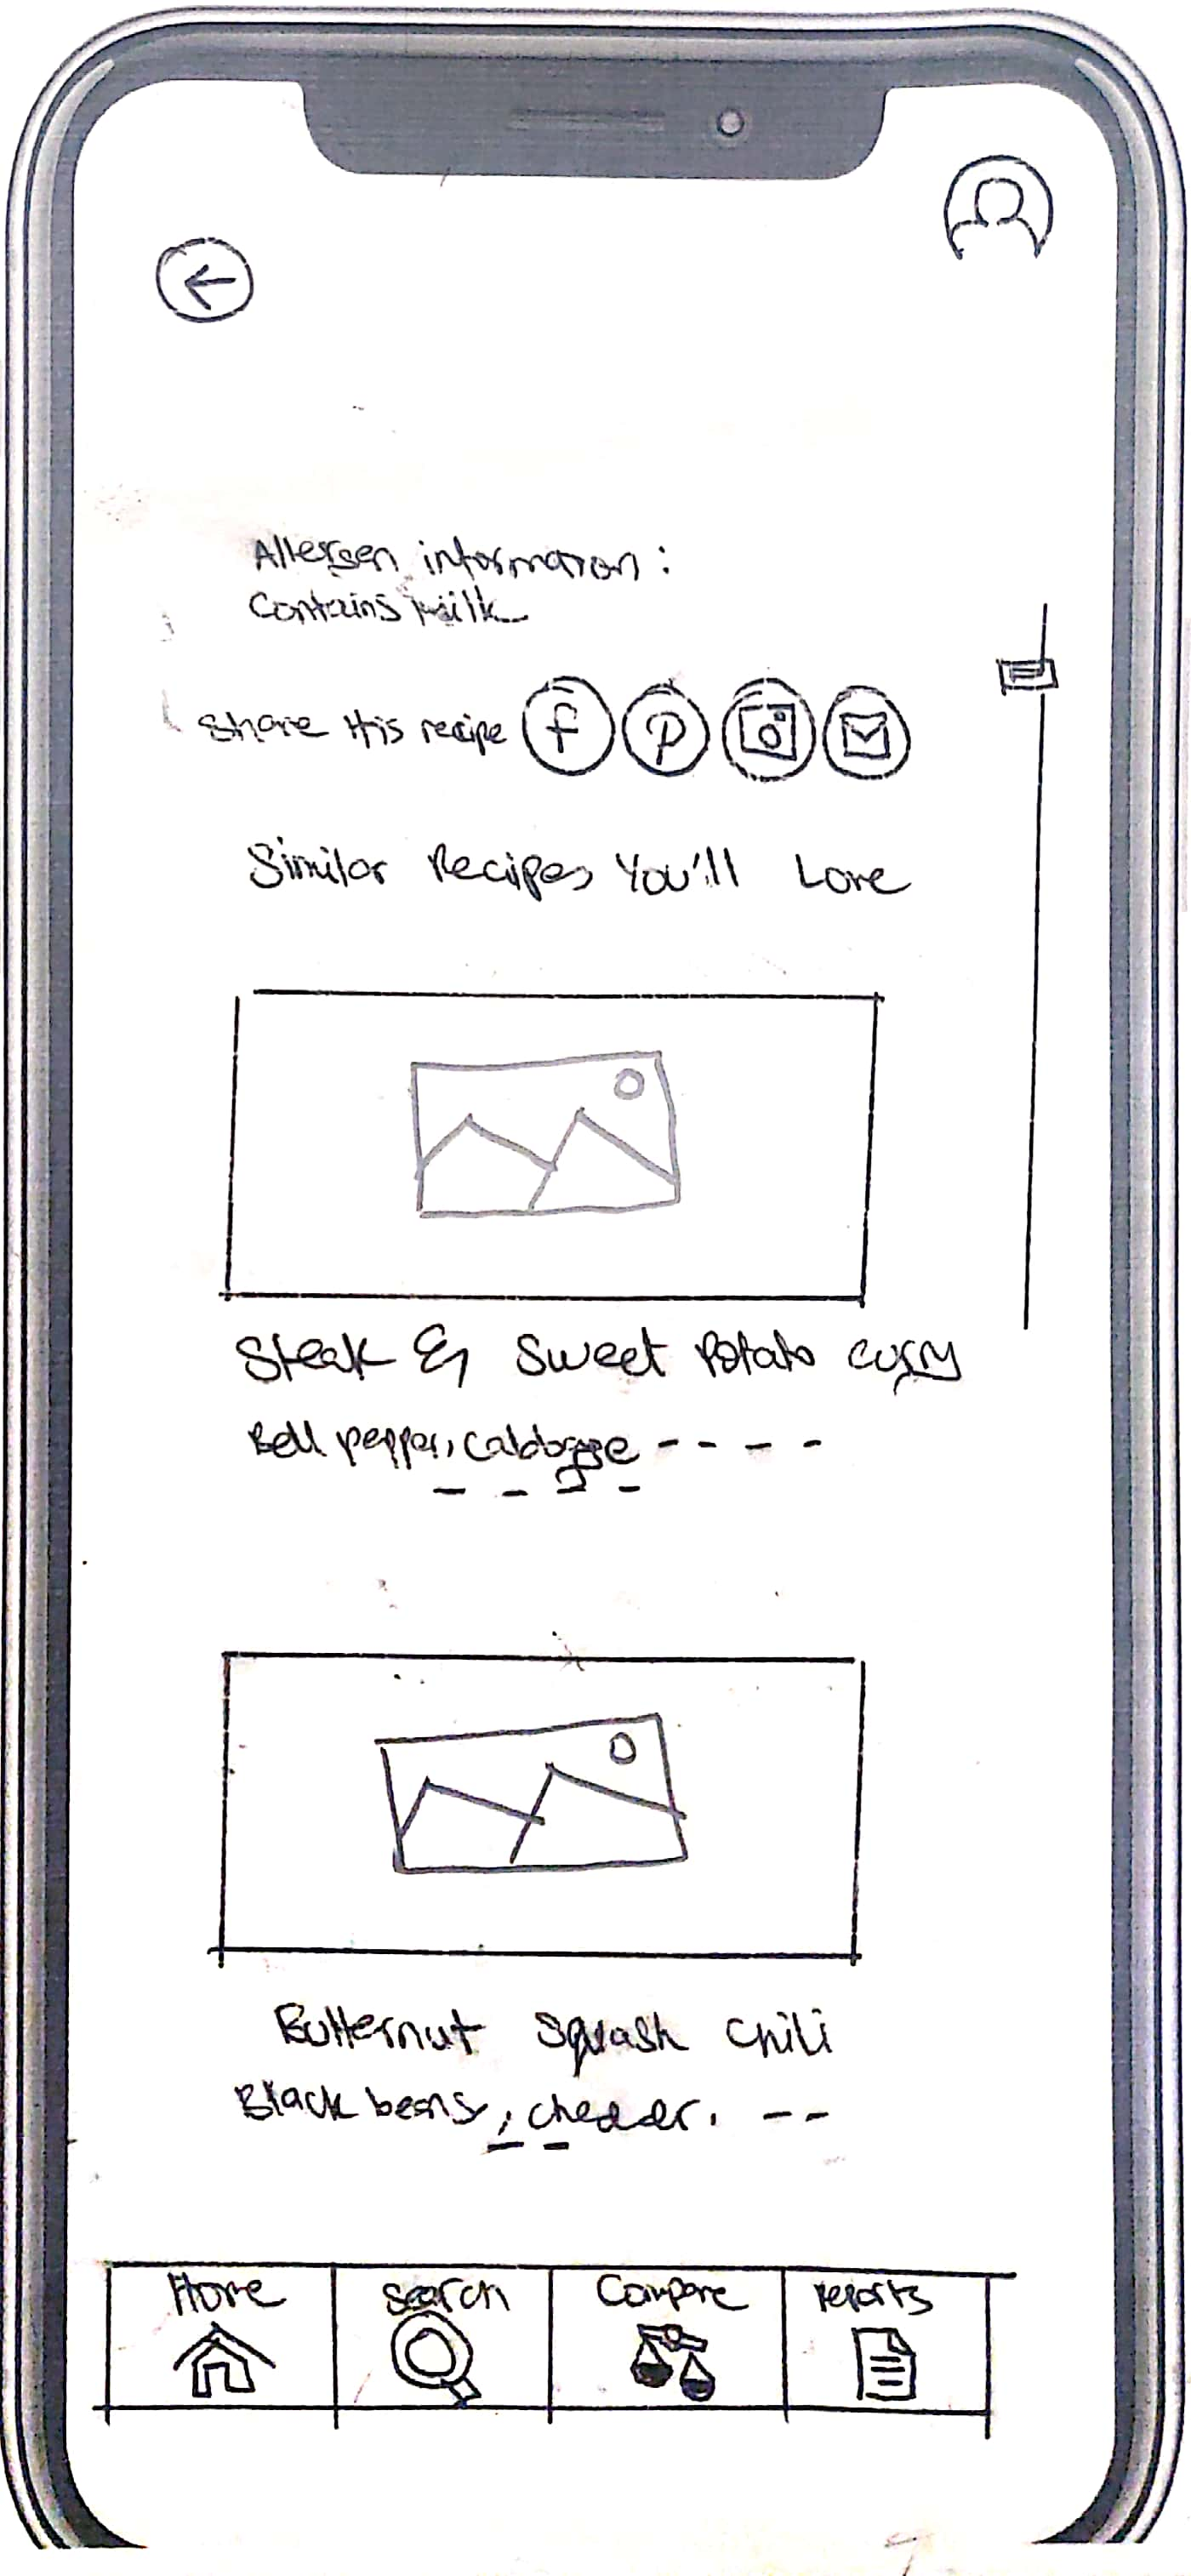 Allergen information:
Contains milk
Share this recipe f P
Similar Recipes You'll Love
Steak & Sweet Potato curry
Bell pepper, cabbage - - - -
- - - -
Butternut Squash Chili
Black beans, chedder. - -
- -
Home Search Compare reports